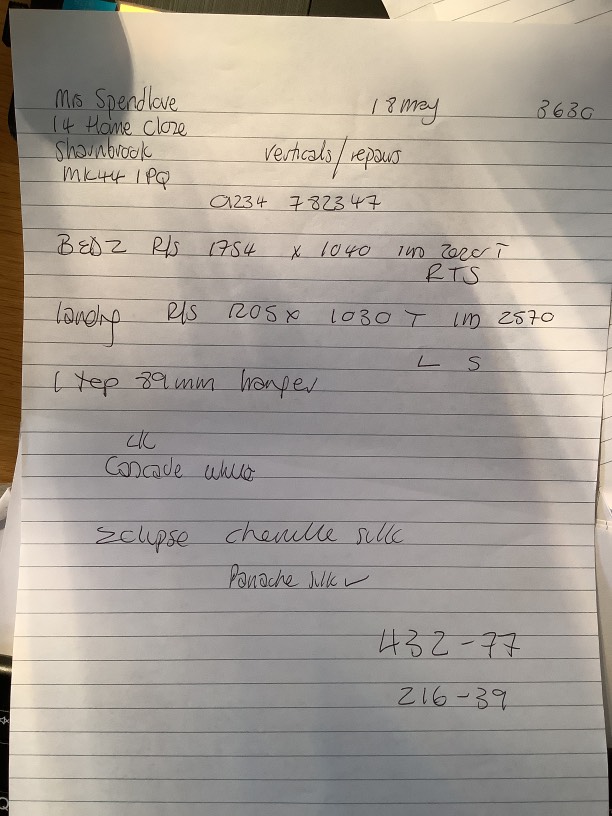 Mrs Spendlove 18 may 3630
14 Home Close
Sharnbrook verticals/repairs
MK44 1PQ
01234 782347
BED 2 R/S 1754 x 1040 T
RTS
landing R/S 1205 x 1030 T 2570
L S
89mm hanger
Cascade white
Eclipse chenille silk
Panache silk ✓
432-77
216-39